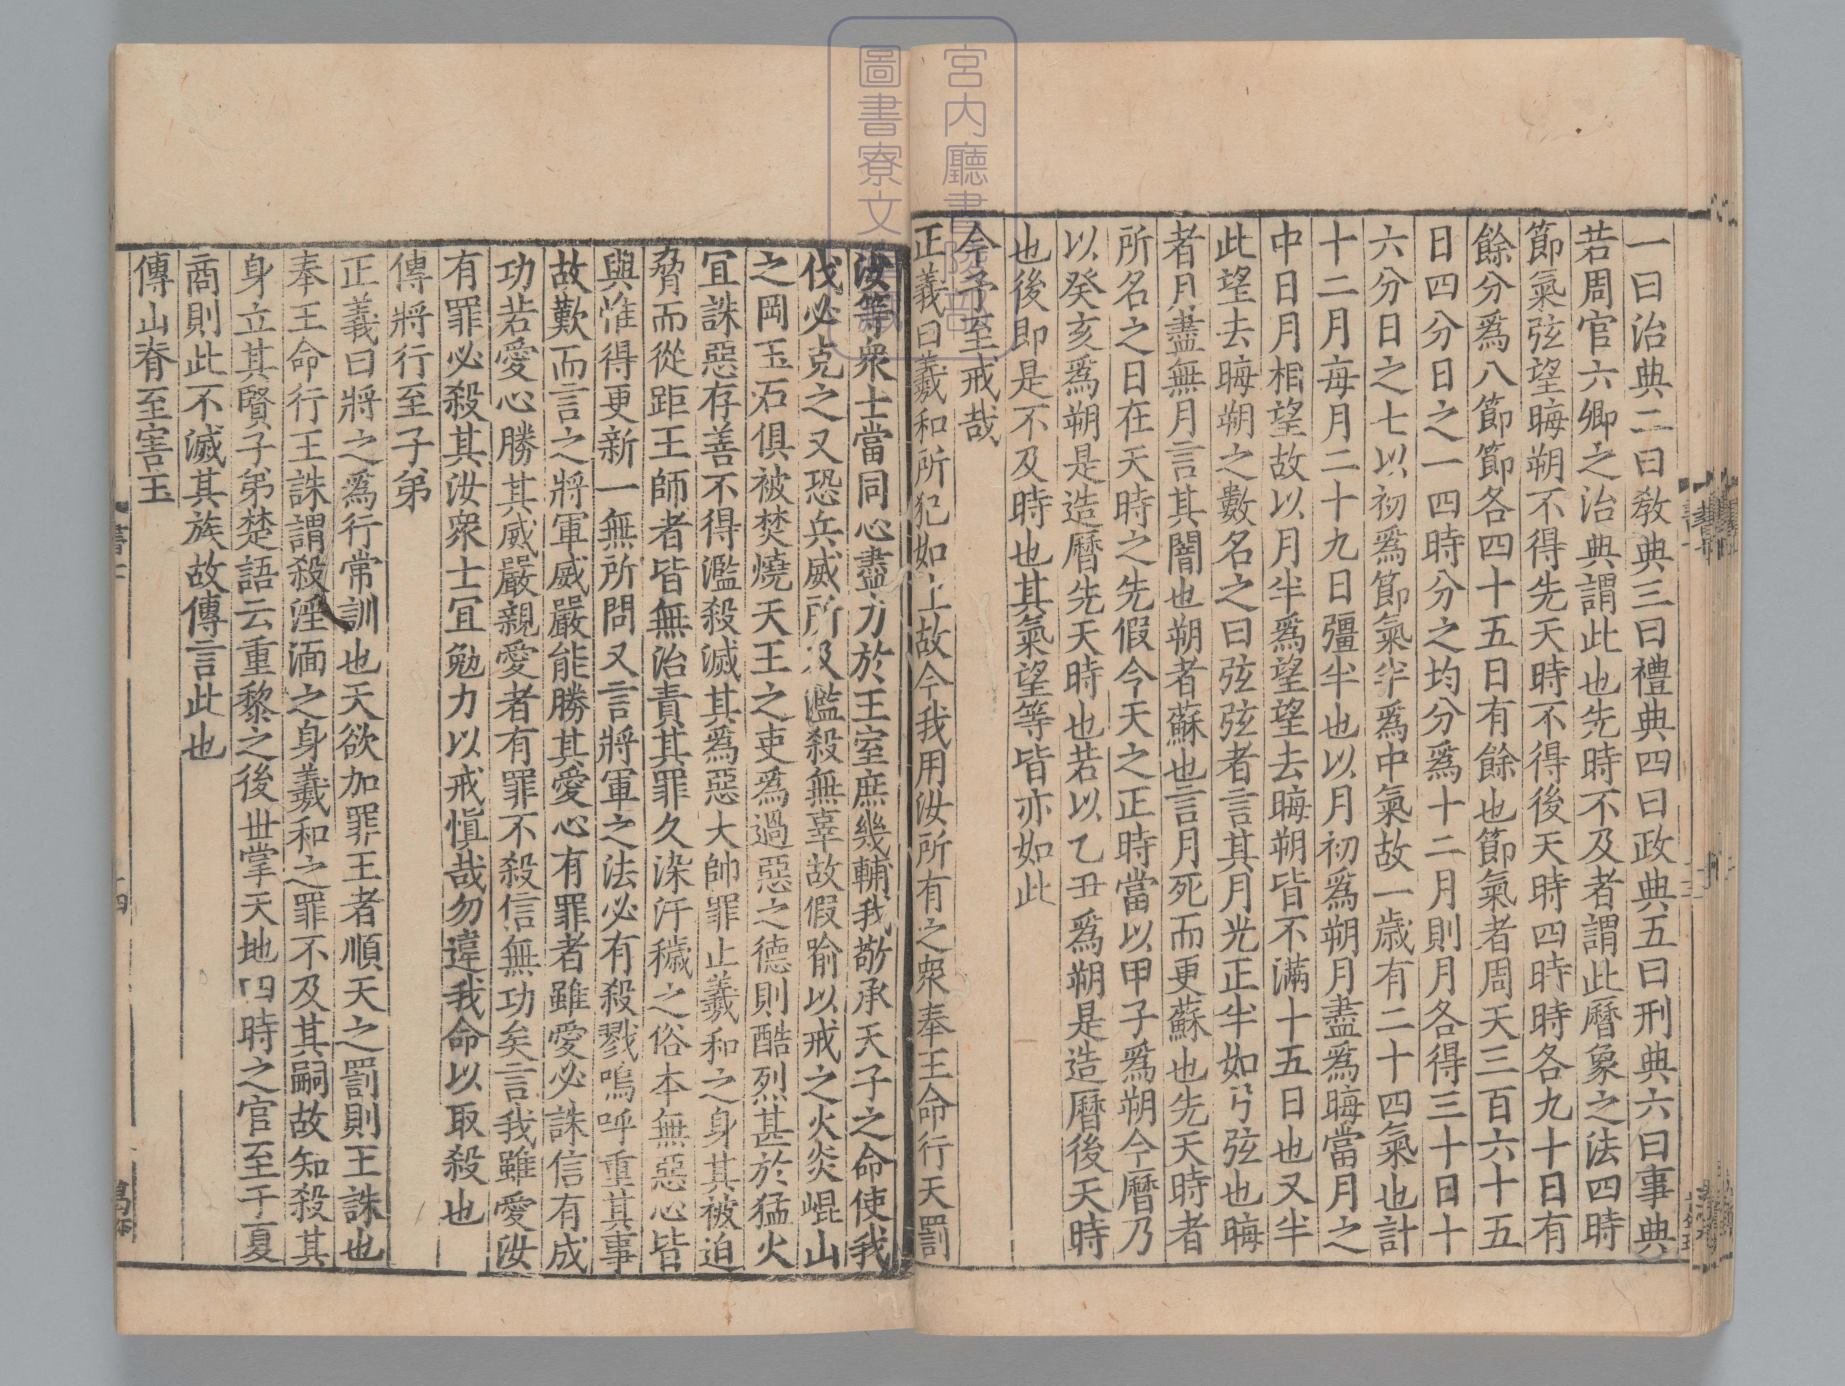 一曰治典二曰敎典三曰禮典四曰政典五曰刑典六曰事典
若周官六卿之治典謂此也先時不及者謂此曆象之法四時
節氣弦望晦朔不得先天時不得後天時四時時各九十日有
餘分爲八節節各四十五日有餘也節氣者周天三百六十五
日四分日之一四時分之均分爲十二月則月各得三十日十
六分日之七以初爲節氣半爲中氣故一歲有二十四氣也計
十二月每月二十九日彊半也以月初爲朔月盡爲晦當月之
中日月相望故以月半爲望望去晦朔皆不滿十五日也又半
此望去晦朔之數名之曰弦弦者言其月光正半如弓弦也晦
者月盡無月言其闇也朔者蘇也言月死而更蘇也先天時者
所名之日在天時之先假令天之正時當以甲子爲朔今曆乃
以癸亥爲朔是造曆先天時也若以乙丑爲朔是造曆後天時
也後即是不及時也其氣望等皆亦如此
今予至戒哉
正義曰羲和所犯如上故今我用汝所有之衆奉王命行天罰
汝等衆士當同心盡力於王室庶幾輔我敬承天子之命使我
伐必克之又恐兵威所及濫殺無辜故假喻以戒之火炎崐山
之岡玉石俱被焚燒天王之吏爲過惡之德則酷烈甚於猛火
宜誅惡存善不得濫殺滅其爲惡大帥罪止羲和之身其被迫
脅而從距王師者皆無治責其罪久染汙穢之俗本無惡心皆
與惟得更新一無所問又言將軍之法必有殺戮嗚呼重其事
故歎而言之將軍威嚴能勝其愛心有罪者雖愛必誅信有成
功若愛心勝其威嚴親愛者有罪不殺信無功矣言我雖愛汝
有罪必殺其汝衆士宜勉力以戒愼哉勿違我命以取殺也
傳將行至子弟
正義曰將之爲行常訓也天欲加罪王者順天之罰則王誅也
奉王命行王誅謂殺淫湎之身羲和之罪不及其嗣故知殺其
身立其賢子弟楚語云重黎之後世掌天地四時之官至于夏
商則此不滅其族故傳言此也
傳山脊至害玉
宮内廳書陵部
圖書寮文